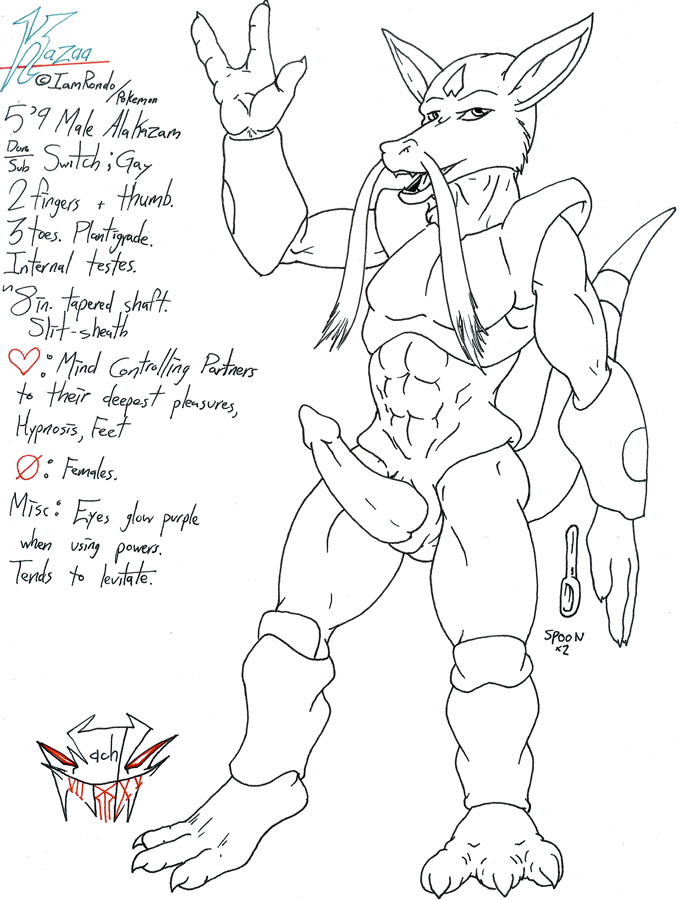 Kazaa
©IamRondo/Pokemon
5'9 Male Alakazam
Dom/Sub Switch; Gay
2 fingers + thumb.
3 toes. Plantigrade.
Internal testes.
~8in. tapered shaft.
Slit-sheath
♡: Mind Controlling Partners
to their deepest pleasures,
Hypnosis, Feet
Ø: Females.
Misc: Eyes glow purple
when using powers.
Tends to levitate.
SPOON
x2